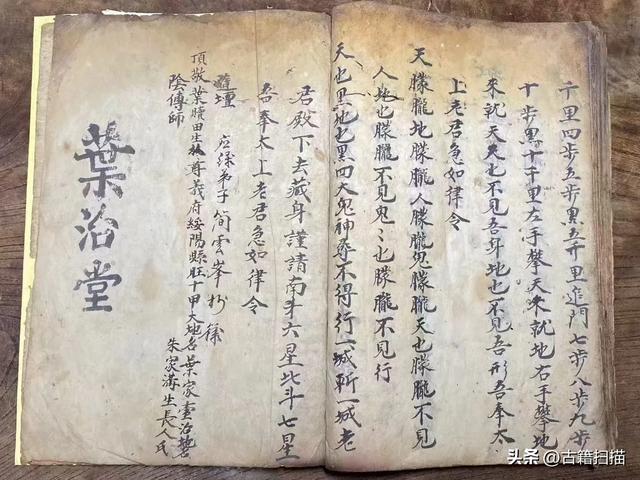 千里四步五步黑五千里追門七步八步九步
十步黑十千里左手攀天來就地右手攀地
來就天天也不見吾身地也不見吾形吾奉太
上老君急如律令
天朦朧地朦朧人朦朧鬼朦朧天也朦朧不見
人地也朦朧不見鬼〻也朦朧不見行
天也黑地也黑四大鬼神尋不得行一城斬一城老
君殿下去藏身謹請南斗六星北斗七星
吾奉太上老君急如律令
壇 弟子簡雲峯抄
頂敬葉贖田生於尊義府綏陽縣旺十甲大地名葉家臺治
朱家溝生長人氏
陰傳師
葉治堂
头条 @古籍扫描